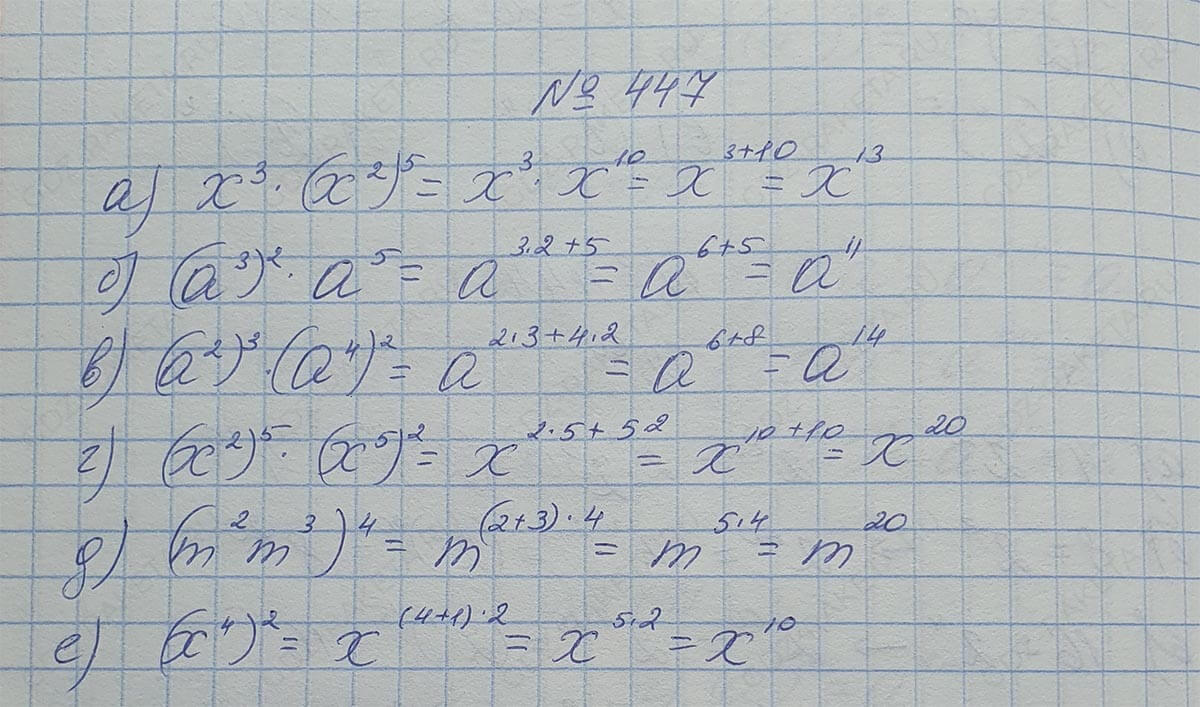 № 447
а) x³ · (x²)⁵ = x³ · x¹⁰ = x³⁺¹⁰ = x¹³
б) (a³)² · a⁵ = a³·²⁺⁵ = a⁶⁺⁵ = a¹¹
в) (a²)³ · (a⁴)² = a²·³⁺⁴·² = a⁶⁺⁸ = a¹⁴
г) (x²)⁵ · (x⁵)² = x²·⁵⁺⁵·² = x¹⁰⁺¹⁰ = x²⁰
д) (m²m³)⁴ = m⁽²⁺³⁾·⁴ = m⁵·⁴ = m²⁰
е) (x⁴)² = x⁽⁴⁺¹⁾·² = x⁵·² = x¹⁰